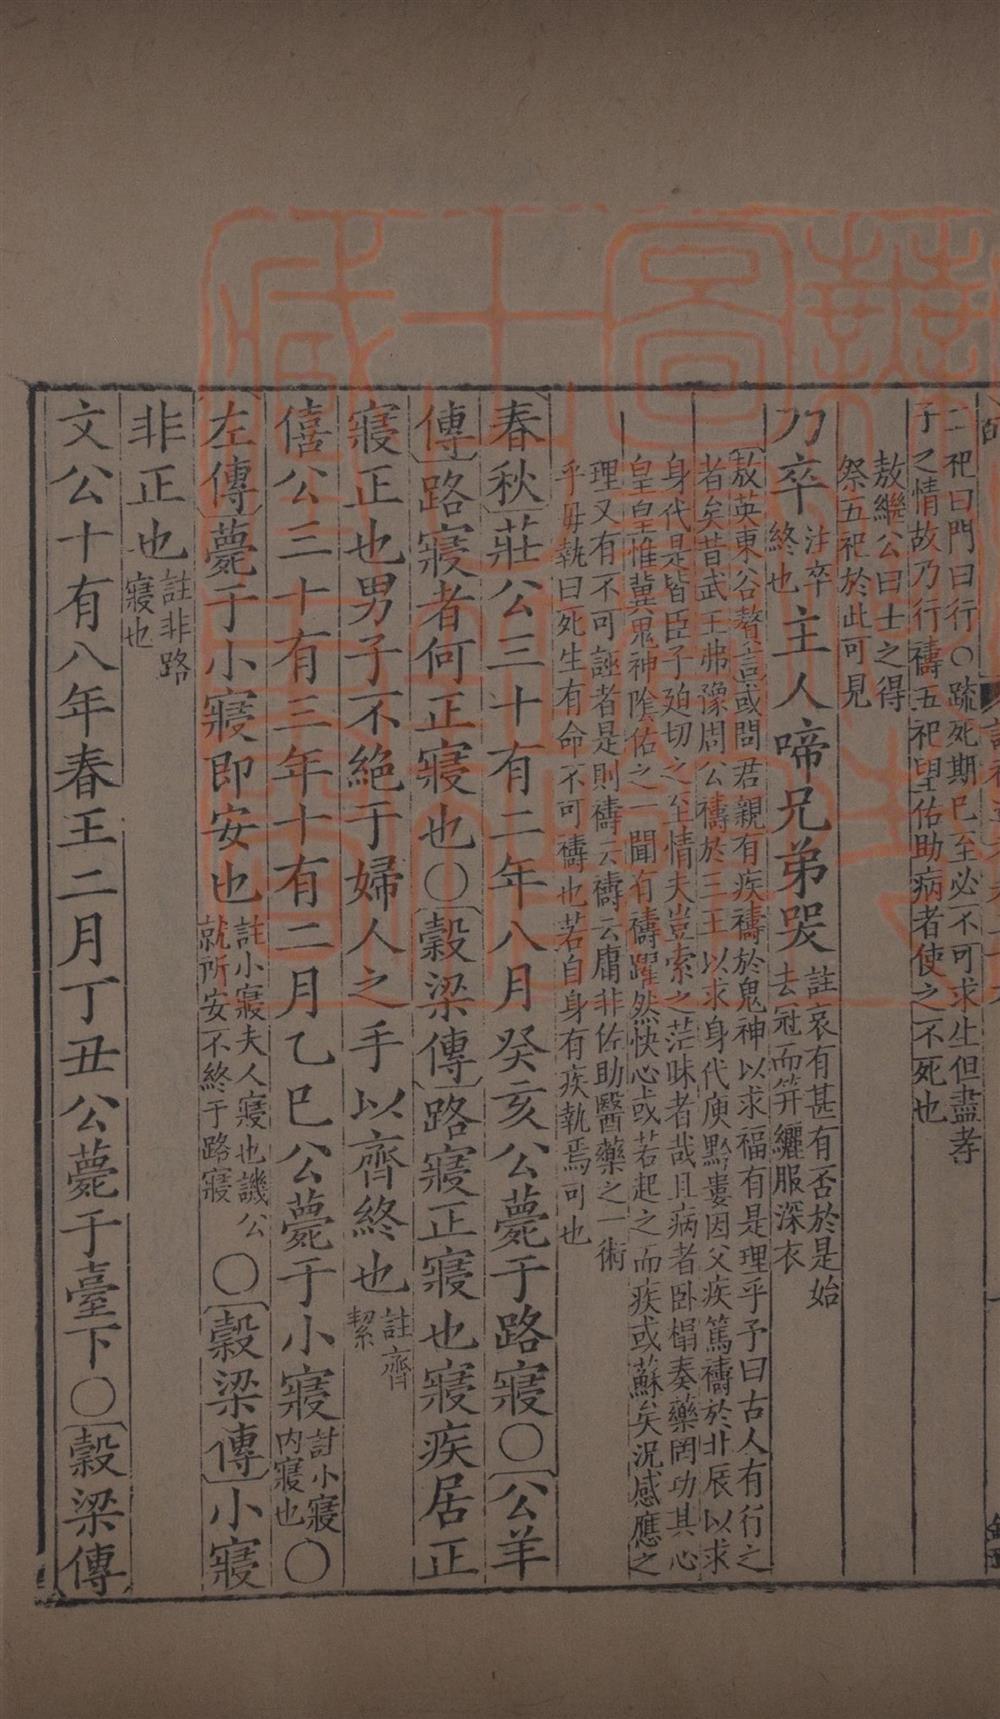 二祀曰門曰行○疏死期已至必不可求生但盡孝
子之情故乃行禱五祀望佑助病者使之不死也
敖繼公曰士之得
祭五祀於此可見
乃卒注卒終也主人啼兄弟哭註哀有甚有否於是始去冠而筓纚服深衣
敖英東谷贅言或問君親有疾禱於鬼神以求福有是理乎予曰古人有行之
者矣昔武王弗豫周公禱於三王以求身代庾黔婁因父疾篤禱於北辰以求
身代是皆臣子廹切之至情夫豈索之茫昧者哉且病者卧榻奏藥罔功其心
皇皇惟冀鬼神隂佑之一聞有禱躍然快心或若起之而疾或蘇矣況感應之
理又有不可誣者是則禱云禱云庸非佐助醫藥之一術
乎毋執曰死生有命不可禱也若自身有疾執焉可也
春秋莊公三十有二年八月癸亥公薨于路寢○公羊
傳路寢者何正寢也○穀梁傳路寢正寢也寢疾居正
寢正也男子不絕于婦人之手以齊終也註齊絜
僖公三十有三年十有二月乙巳公薨于小寢註小寢內寢也○
左傳薨于小寢即安也註小寢夫人寢也譏公就所安不終于路寢○穀梁傳小寢
非正也註非路寢也
文公十有八年春王二月丁丑公薨于臺下○穀梁傳